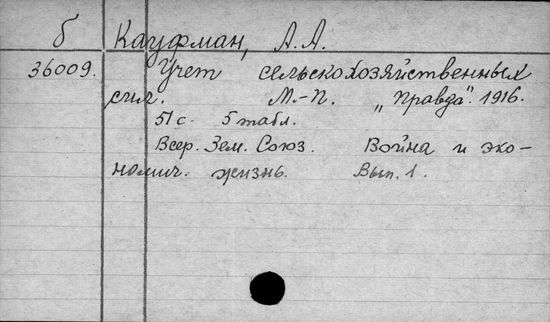 б Кауфман, А.А.
36009. Учет сельскохозяйственных
сил. М.-П. „Правда". 1916.
51 с. 5 табл.
Всер. Зем. Союз. Война и эко-
номич. жизнь. Вып. 1.